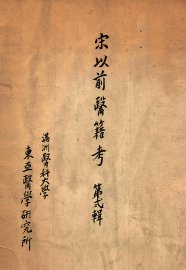 宋以前醫籍考 第弍輯
滿洲醫科大學
東亞醫學研究所